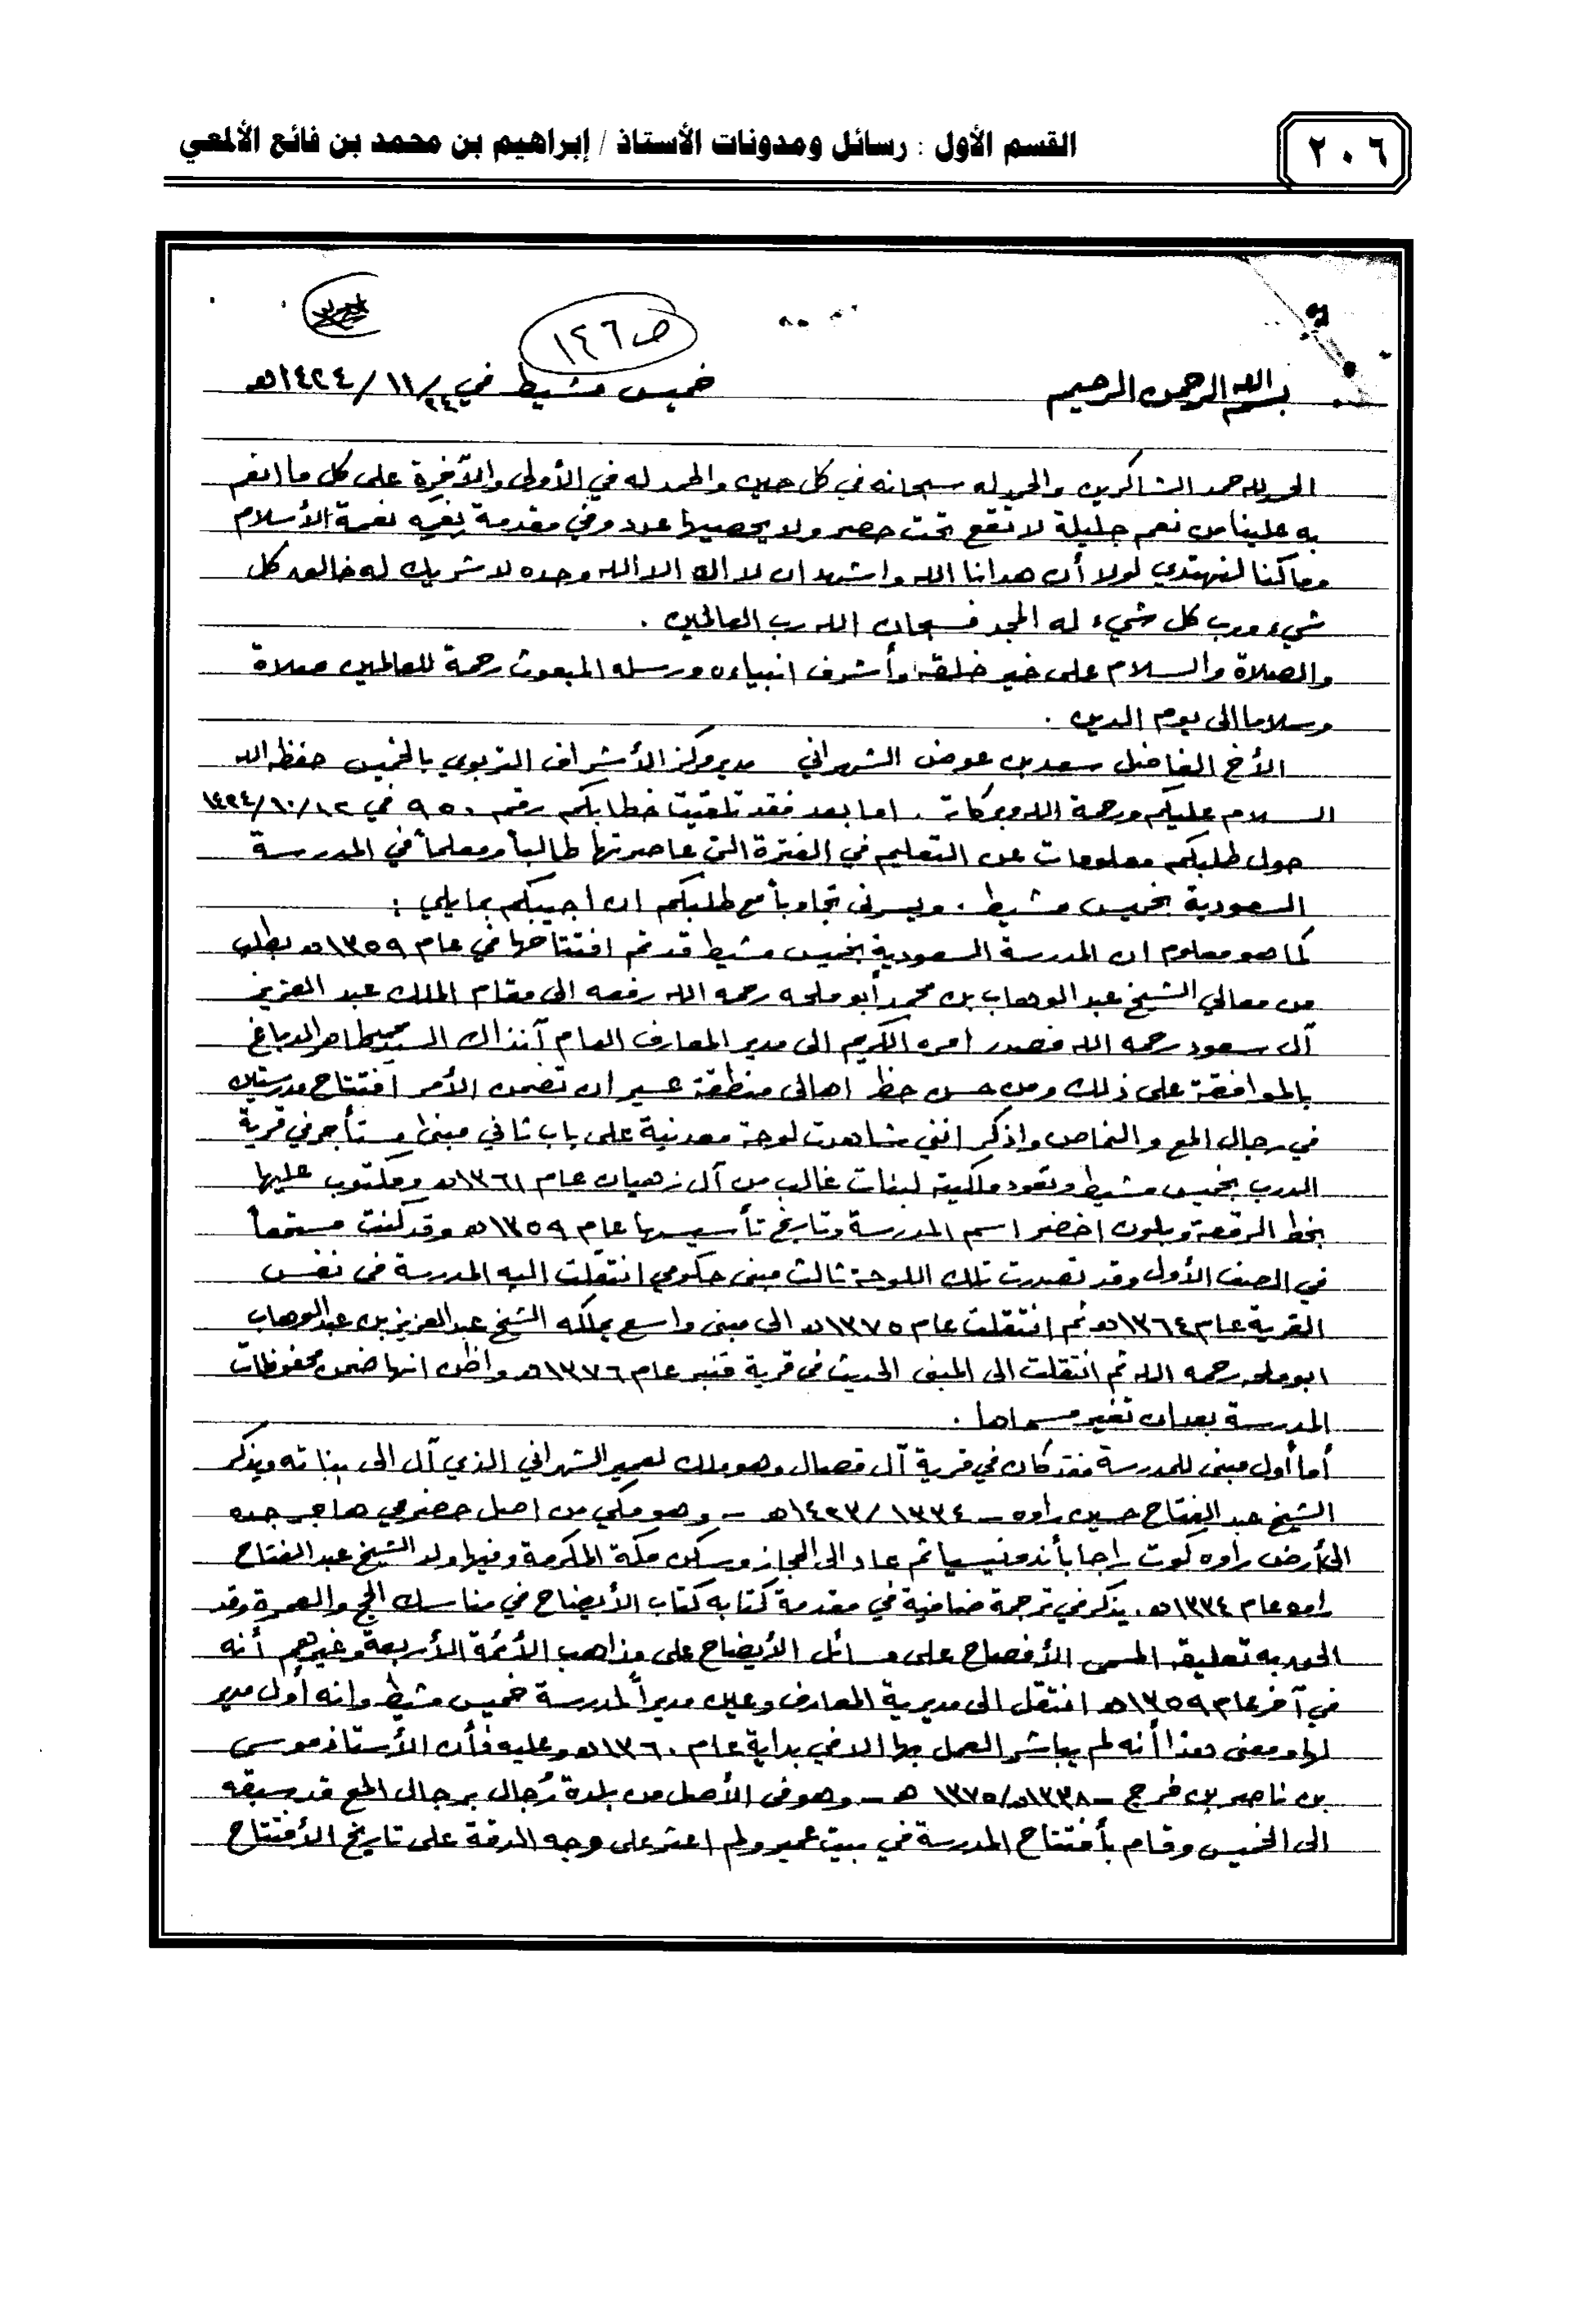 القسم الأول : رسائل ومدونات الأستاذ / إبراهيم بن محمد بن فائع الألمعي
٢٠٦
ص ١٤٦
بسم الله الرحمن الرحيم
خميس مشيط في ٢٤/١١/١٤٢٤هـ
الحمد لله حمد الشاكرين والحمد له سبحانه في كل حين والحمد له في الأولى والآخرة على كل ما انعم
به علينا من نعم جليلة لا تقع تحت حصر ولا يحصيها عدد وفي مقدمة نعمه نعمة الأسلام
وما كنا لنهتدي لولا أن هدانا الله واشهد ان لا اله الا الله وحده لا شريك له خالق كل
شيء ورب كل شيء له المجد فسبحان الله رب العالمين .
والصلاة والسلام على خير خلقه وأشرف انبياءه ورسله المبعوث رحمة للعالمين صلاة
وسلاما الى يوم الدين .
الأخ الفاضل سعد بن عوض الشهراني مدير مركز الأشراف التربوي بالخميس حفظه الله
السلام عليكم ورحمة الله وبركاته . اما بعد فقد تلقيت خطابكم رقم ٩٥٠ في ١٢/١٠/١٤٢٤
حول طلبكم معلومات عن التعليم في الفترة التي عاصرتها طالباً ومعلماً في المدرسة
السعودية بخميس مشيط . ويسرني تجاوباً مع طلبكم ان اجيبكم بما يلي :
كما هو معلوم ان المدرسة السعودية بخميس مشيط قد تم افتتاحها في عام ١٣٥٩هـ بطلب
من معالي الشيخ عبد الوهاب بن محمد أبو ملحه رحمه الله رفعه الى مقام الملك عبد العزيز
آل سعود رحمه الله فصدر امره الكريم الى مدير المعارف العام آنذاك السيد محمد طاهر الدباغ
بالموافقة على ذلك ومن حسن حظ اهالي منطقة عسير ان تضمن الأمر أفتتاح مدرستين
في رجال المع والنماص واذكر انني شاهدت لوحة معدنية على باب ثاني مبنى مستأجر في قرية
الدرب بخميس مشيط وتعود ملكيته لبنات غالب من آل زهيان عام ١٣٦١هـ ومكتوب عليها
بخط الرقعة وبلون اخضر اسم المدرسة وتاريخ تأسيسها عام ١٣٥٩هـ وقد كنت مستمعاً
في الصف الأول وقد تصدرت تلك اللوحة ثالث مبنى حكومي انتقلت اليه المدرسة في نفس
القرية عام ١٣٦٤هـ ثم انتقلت عام ١٣٧٥هـ الى مبنى واسع يملكه الشيخ عبد العزيز بن عبد الوهاب
ابو ملحه رحمه الله ثم انتقلت الى المبنى الحديث في قرية قنبر عام ١٣٧٦هـ واظن انها ضمن محفوظات
المدرسة بعد ان تغير مسماها .
أما أول مبنى للمدرسة فقد كان في قرية آل قصال وهو ملك لعمير الشهراني الذي آل الى بناته ويذكر
الشيخ عبد الفتاح حسين راوه - ١٣٣٤/١٤٢٣هـ - وهو مكي من اصل حضرمي هاجر جده
الى أرض راوه كوت راجا بأندونيسيا ثم عاد الى الحجاز وسكن مكة المكرمة وفيها ولد الشيخ عبد الفتاح
راوه عام ١٣٣٤هـ . يذكر في ترجمة ضافية في مقدمة كتابه كتاب الأيضاح في مناسك الحج والعمرة وقد
الحق به تعليقه المسمى الأفصاح على مسائل الأيضاح على مذاهب الأئمة الأربعة وغيرهم أنه
في آخر عام ١٣٥٩هـ انتقل الى مديرية المعارف وعين مديراً لمدرسة خميس مشيط وانه أول مدير
لها ومعنى هذا أنه لم يباشر العمل بها الا في بداية عام ١٣٦٠هـ وعليه فأن الأستاذ موسى
بن ناصر بن فرج - ١٣٣٨هـ/١٣٧٥ هـ - وهو في الأصل من بلدة رُجال برجال المع قد سبقه
الى الخميس وقام بأفتتاح المدرسة في بيت عمير ولم اعثر على وجه الدقة على تاريخ الأفتتاح